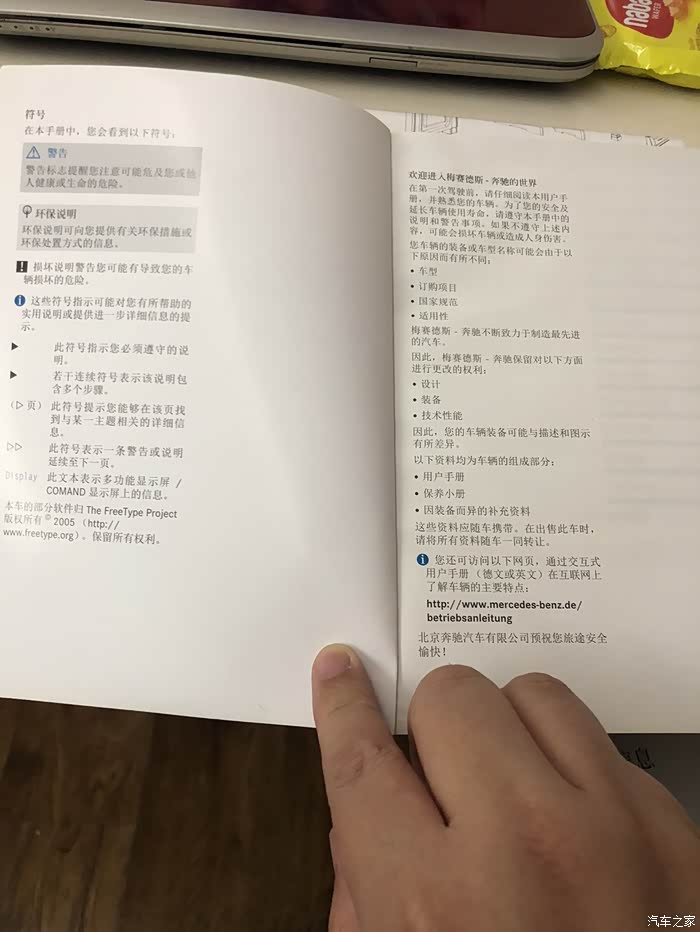 符号
在本手册中，您会看到以下符号：
警告
警告标志提醒您注意可能危及您或他
人健康或生命的危险。
环保说明
环保说明可向您提供有关环保措施或
环保处置方式的信息。
损坏说明警告您可能有导致您的车
辆损坏的危险。
这些符号指示可能对您有所帮助的
实用说明或提供进一步详细信息的提
示。
此符号指示您必须遵守的说
明。
若干连续符号表示该说明包
含多个步骤。
（▷ 页） 此符号提示您能够在该页找
到与某一主题相关的详细信
息。
▷▷ 此符号表示一条警告或说明
延续至下一页。
Display 此文本表示多功能显示屏 /
COMAND 显示屏上的信息。
本车的部分软件归 The FreeType Project
版权所有 © 2005 （http://
www.freetype.org）。保留所有权利。
欢迎进入梅赛德斯 - 奔驰的世界
在第一次驾驶前，请仔细阅读本用户手
册，并熟悉您的车辆。为了您的安全及
延长车辆使用寿命，请遵守本手册中的
说明和警告事项。如果不遵守上述内
容，可能会损坏车辆或造成人身伤害。
您车辆的装备或车型名称可能会由于以
下原因而有所不同：
• 车型
• 订购项目
• 国家规范
• 适用性
梅赛德斯 - 奔驰不断致力于制造最先进
的汽车。
因此，梅赛德斯 - 奔驰保留对以下方面
进行更改的权利：
• 设计
• 装备
• 技术性能
因此，您的车辆装备可能与描述和图示
有所差异。
以下资料均为车辆的组成部分：
• 用户手册
• 保养小册
• 因装备而异的补充资料
这些资料应随车携带。在出售此车时，
请将所有资料随车一同转让。
您还可访问以下网页，通过交互式
用户手册 （德文或英文）在互联网上
了解车辆的主要特点：
http://www.mercedes-benz.de/
betriebsanleitung
北京奔驰汽车有限公司预祝您旅途安全
愉快！
息
汽车之家